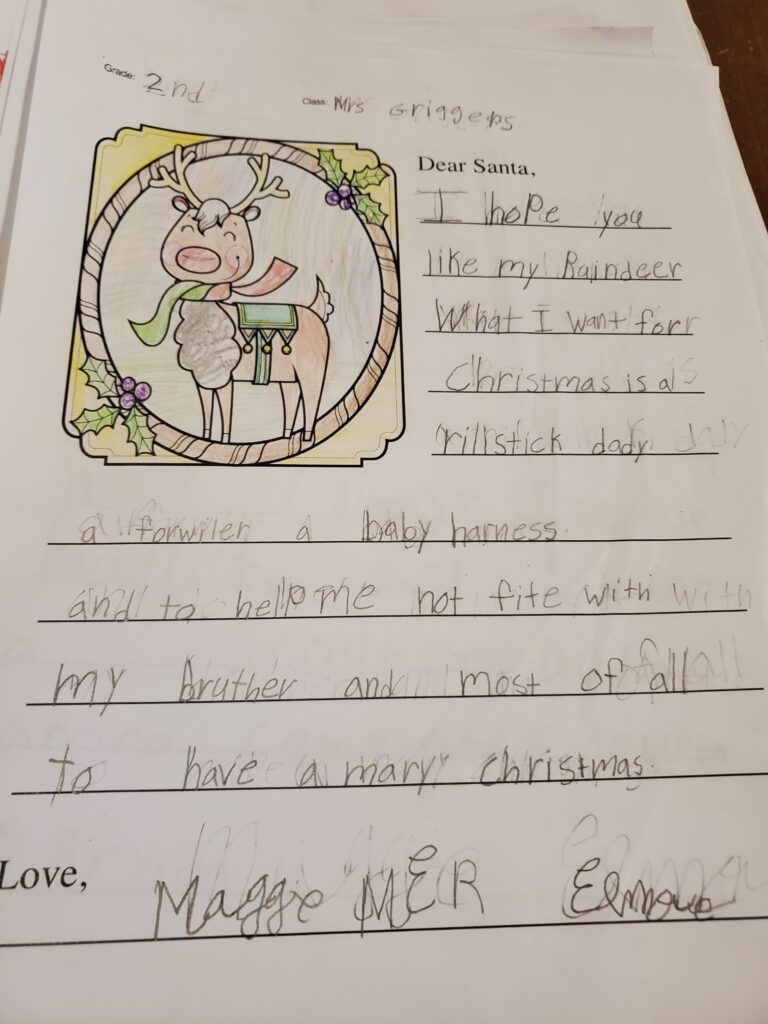 Grade: 2nd
Class: Mrs Griggers
Dear Santa,
I hope you
like my Raindeer
What I want forr
Christmas is a
rillrstick dady
a forwiler a baby harness.
and to help me not fite with
my bruther and most of all
to have a mary christmas.
Love,
Maggie MER